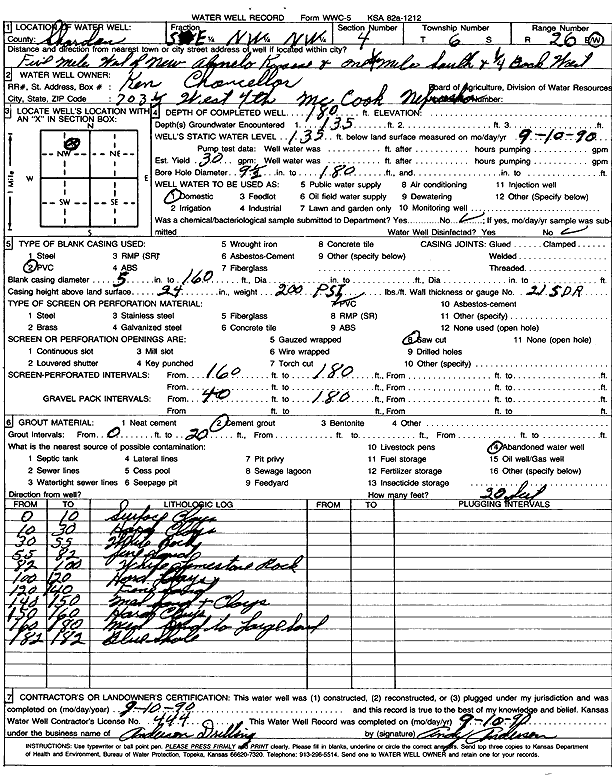 WATER WELL RECORD Form WWC-5 KSA 82a-1212
1 LOCATION OF WATER WELL: Fraction Section Number Township Number Range Number
County: Sheridan SE NW NW 4 T 6 S R 26 E/W
Distance and direction from nearest town or city street address of well if located within city?
Five mile West of New Almelo Kansas & one mile South & 1/4 Back West
2 WATER WELL OWNER: Ken Chancellor
RR#, St. Address, Box #: Board of Agriculture, Division of Water Resources
City, State, ZIP Code : 703 West 4th Mc Cook Nebraska Number:
3 LOCATE WELL'S LOCATION WITH AN "X" IN SECTION BOX:
N
NW NE
W E
SW SE
S
1 Mile
4 DEPTH OF COMPLETED WELL 180 ft. ELEVATION:
Depth(s) Groundwater Encountered 1 135 ft. 2 ft. 3 ft.
WELL'S STATIC WATER LEVEL 135 ft. below land surface measured on mo/day/yr 9-10-90
Pump test data: Well water was ft. after hours pumping gpm
Est. Yield 30 gpm: Well water was ft. after hours pumping gpm
Bore Hole Diameter 9 1/2 in. to 180 ft., and in. to ft.
WELL WATER TO BE USED AS: 5 Public water supply 8 Air conditioning 11 Injection well
1 Domestic 3 Feedlot 6 Oil field water supply 9 Dewatering 12 Other (Specify below)
2 Irrigation 4 Industrial 7 Lawn and garden only 10 Monitoring well
Was a chemical/bacteriological sample submitted to Department? Yes No ✓; If yes, mo/day/yr sample was submitted Water Well Disinfected? Yes No ✓
5 TYPE OF BLANK CASING USED: 5 Wrought iron 8 Concrete tile CASING JOINTS: Glued Clamped
1 Steel 3 RMP (SR) 6 Asbestos-Cement 9 Other (specify below) Welded
2 PVC 4 ABS 7 Fiberglass Threaded
Blank casing diameter 5 in. to 160 ft., Dia in. to ft., Dia in. to ft.
Casing height above land surface 24 in., weight 200 PSI lbs./ft. Wall thickness or gauge No. 21 SDR
TYPE OF SCREEN OR PERFORATION MATERIAL: 7 PVC 10 Asbestos-cement
1 Steel 3 Stainless steel 5 Fiberglass 8 RMP (SR) 11 Other (specify)
2 Brass 4 Galvanized steel 6 Concrete tile 9 ABS 12 None used (open hole)
SCREEN OR PERFORATION OPENINGS ARE: 5 Gauzed wrapped 8 Saw cut 11 None (open hole)
1 Continuous slot 3 Mill slot 6 Wire wrapped 9 Drilled holes
2 Louvered shutter 4 Key punched 7 Torch cut 10 Other (specify)
SCREEN-PERFORATED INTERVALS: From 160 ft. to 180 ft., From ft. to ft.
From ft. to ft., From ft. to ft.
GRAVEL PACK INTERVALS: From 40 ft. to 180 ft., From ft. to ft.
From ft. to ft., From ft. to ft.
6 GROUT MATERIAL: 1 Neat cement 2 Cement grout 3 Bentonite 4 Other
Grout Intervals: From 0 ft. to 20 ft., From ft. to ft., From ft. to ft.
What is the nearest source of possible contamination: 10 Livestock pens 14 Abandoned water well
1 Septic tank 4 Lateral lines 7 Pit privy 11 Fuel storage 15 Oil well/Gas well
2 Sewer lines 5 Cess pool 8 Sewage lagoon 12 Fertilizer storage 16 Other (specify below)
3 Watertight sewer lines 6 Seepage pit 9 Feedyard 13 Insecticide storage
Direction from well? How many feet? 20 feet
FROM TO LITHOLOGIC LOG FROM TO PLUGGING INTERVALS
0 10 Surface Clays
10 30 Hard Clays
30 55 White Rock
55 82 Fine Sand
82 100 White Limestone Rock
100 120 Hard Clays
120 140 Fine Sand
140 150 Med Sand & Clays
150 160 Hard Clays
160 180 Med Sand to Large Sand
182 182 Blue Shale
7 CONTRACTOR'S OR LANDOWNER'S CERTIFICATION: This water well was (1) constructed, (2) reconstructed, or (3) plugged under my jurisdiction and was
completed on (mo/day/year) 9-10-90 and this record is true to the best of my knowledge and belief. Kansas
Water Well Contractor's License No. 444 This Water Well Record was completed on (mo/day/yr) 9-10-90
under the business name of Anderson Drilling by (signature) Andy Anderson
INSTRUCTIONS: Use typewriter or ball point pen. PLEASE PRESS FIRMLY and PRINT clearly. Please fill in blanks, underline or circle the correct answers. Send top three copies to Kansas Department
of Health and Environment, Bureau of Water Protection, Topeka, Kansas 66620-7320. Telephone: 913-296-5514. Send one to WATER WELL OWNER and retain one for your records.